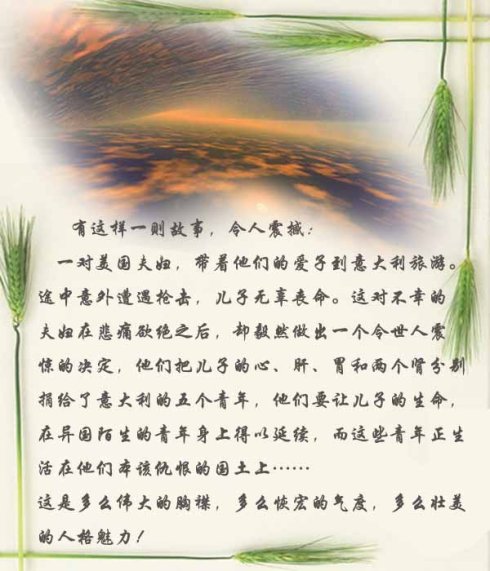 有这样一则故事，令人震撼：
一对美国夫妇，带着他们的爱子到意大利旅游。
途中意外遭遇枪击，儿子无辜丧命。这对不幸的
夫妇在悲痛欲绝之后，却毅然做出一个令世人震
惊的决定，他们把儿子的心、肝、胃和两个肾分别
捐给了意大利的五个青年，他们要让儿子的生命，
在异国陌生的青年身上得以延续，而这些青年正生
活在他们本该仇恨的国土上……
这是多么伟大的胸襟，多么恢宏的气度，多么壮美
的人格魅力！